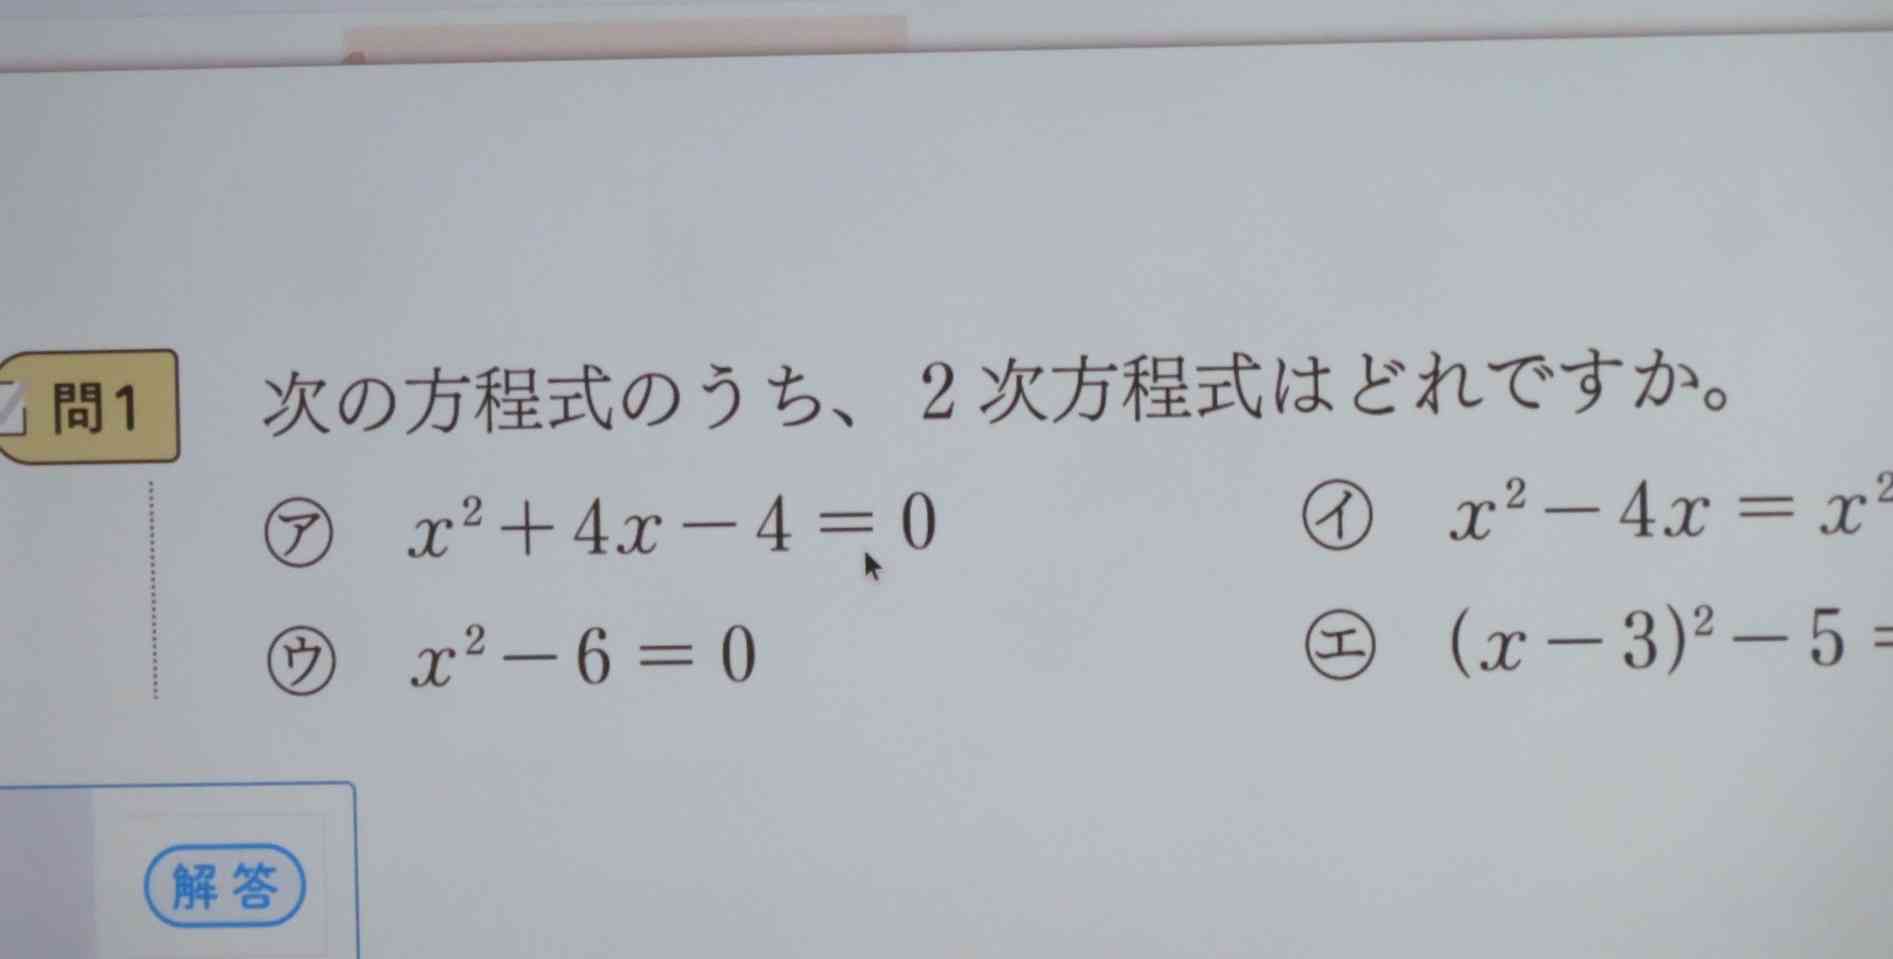 問1 次の方程式のうち、2次方程式はどれですか。
㋐ x² + 4x − 4 = 0 ㋑ x² − 4x = x²
㋒ x² − 6 = 0 ㋓ (x − 3)² − 5 =
解答